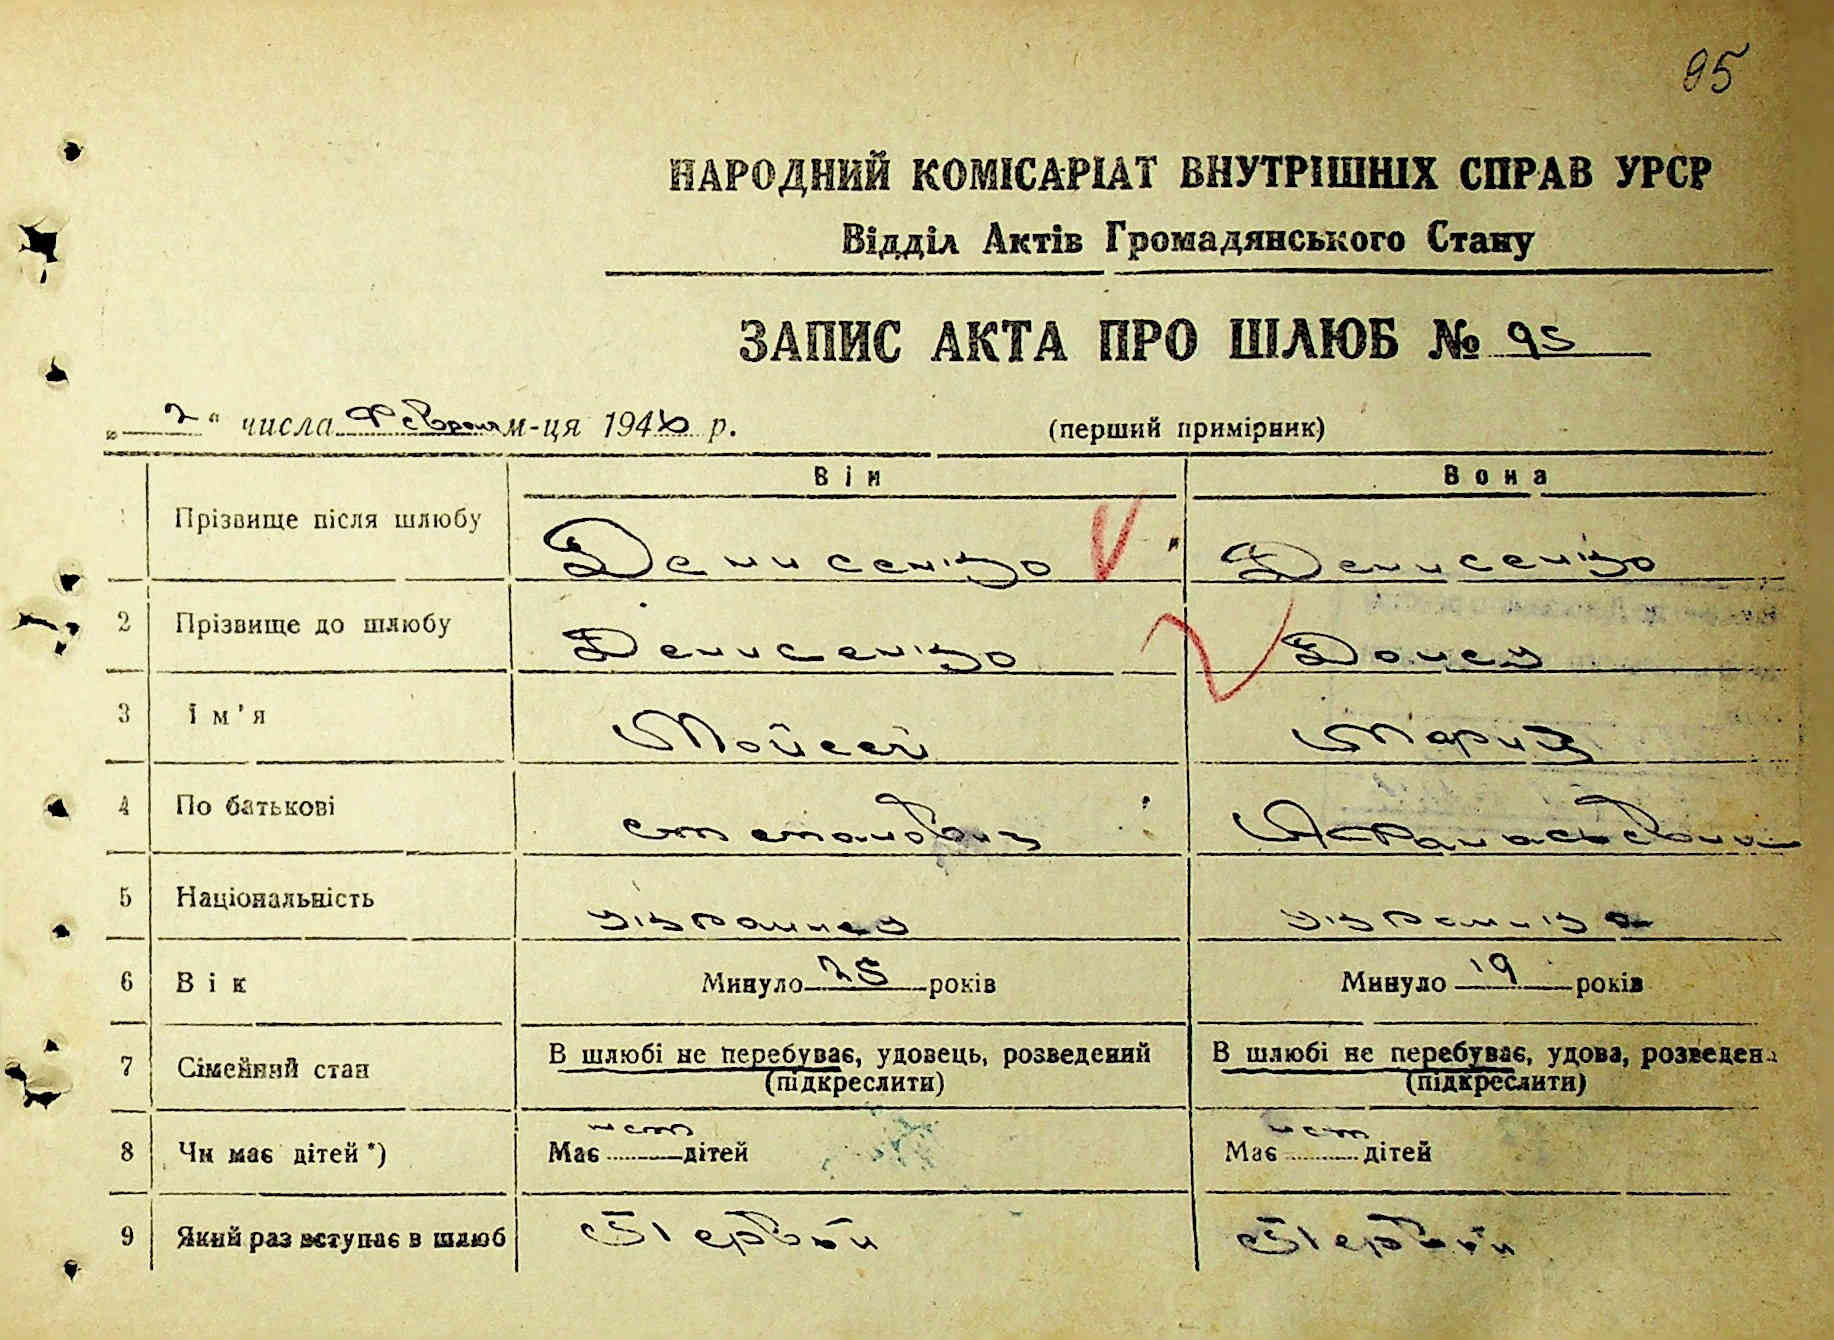 95
НАРОДНИЙ КОМІСАРІАТ ВНУТРІШНІХ СПРАВ УРСР
Відділ Актів Громадянського Стану
ЗАПИС АКТА ПРО ШЛЮБ № 95
„2“ числа Февраля м-ця 1946 р. (перший примірник)
Він Вона
1 Прізвище після шлюбу Денисенко Денисенко
2 Прізвище до шлюбу Денисенко Донец
3 Ім'я Мойсей Мария
4 По батькові Степанович Афанасьевна
5 Національність украинец украинка
6 Вік Минуло 25 років Минуло 19 років
7 Сімейний стан В шлюбі не перебуває, удовець, розведений В шлюбі не перебуває, удова, розведена
(підкреслити) (підкреслити)
8 Чи має дітей *) Має нет дітей Має нет дітей
9 Який раз вступає в шлюб Первый Первый